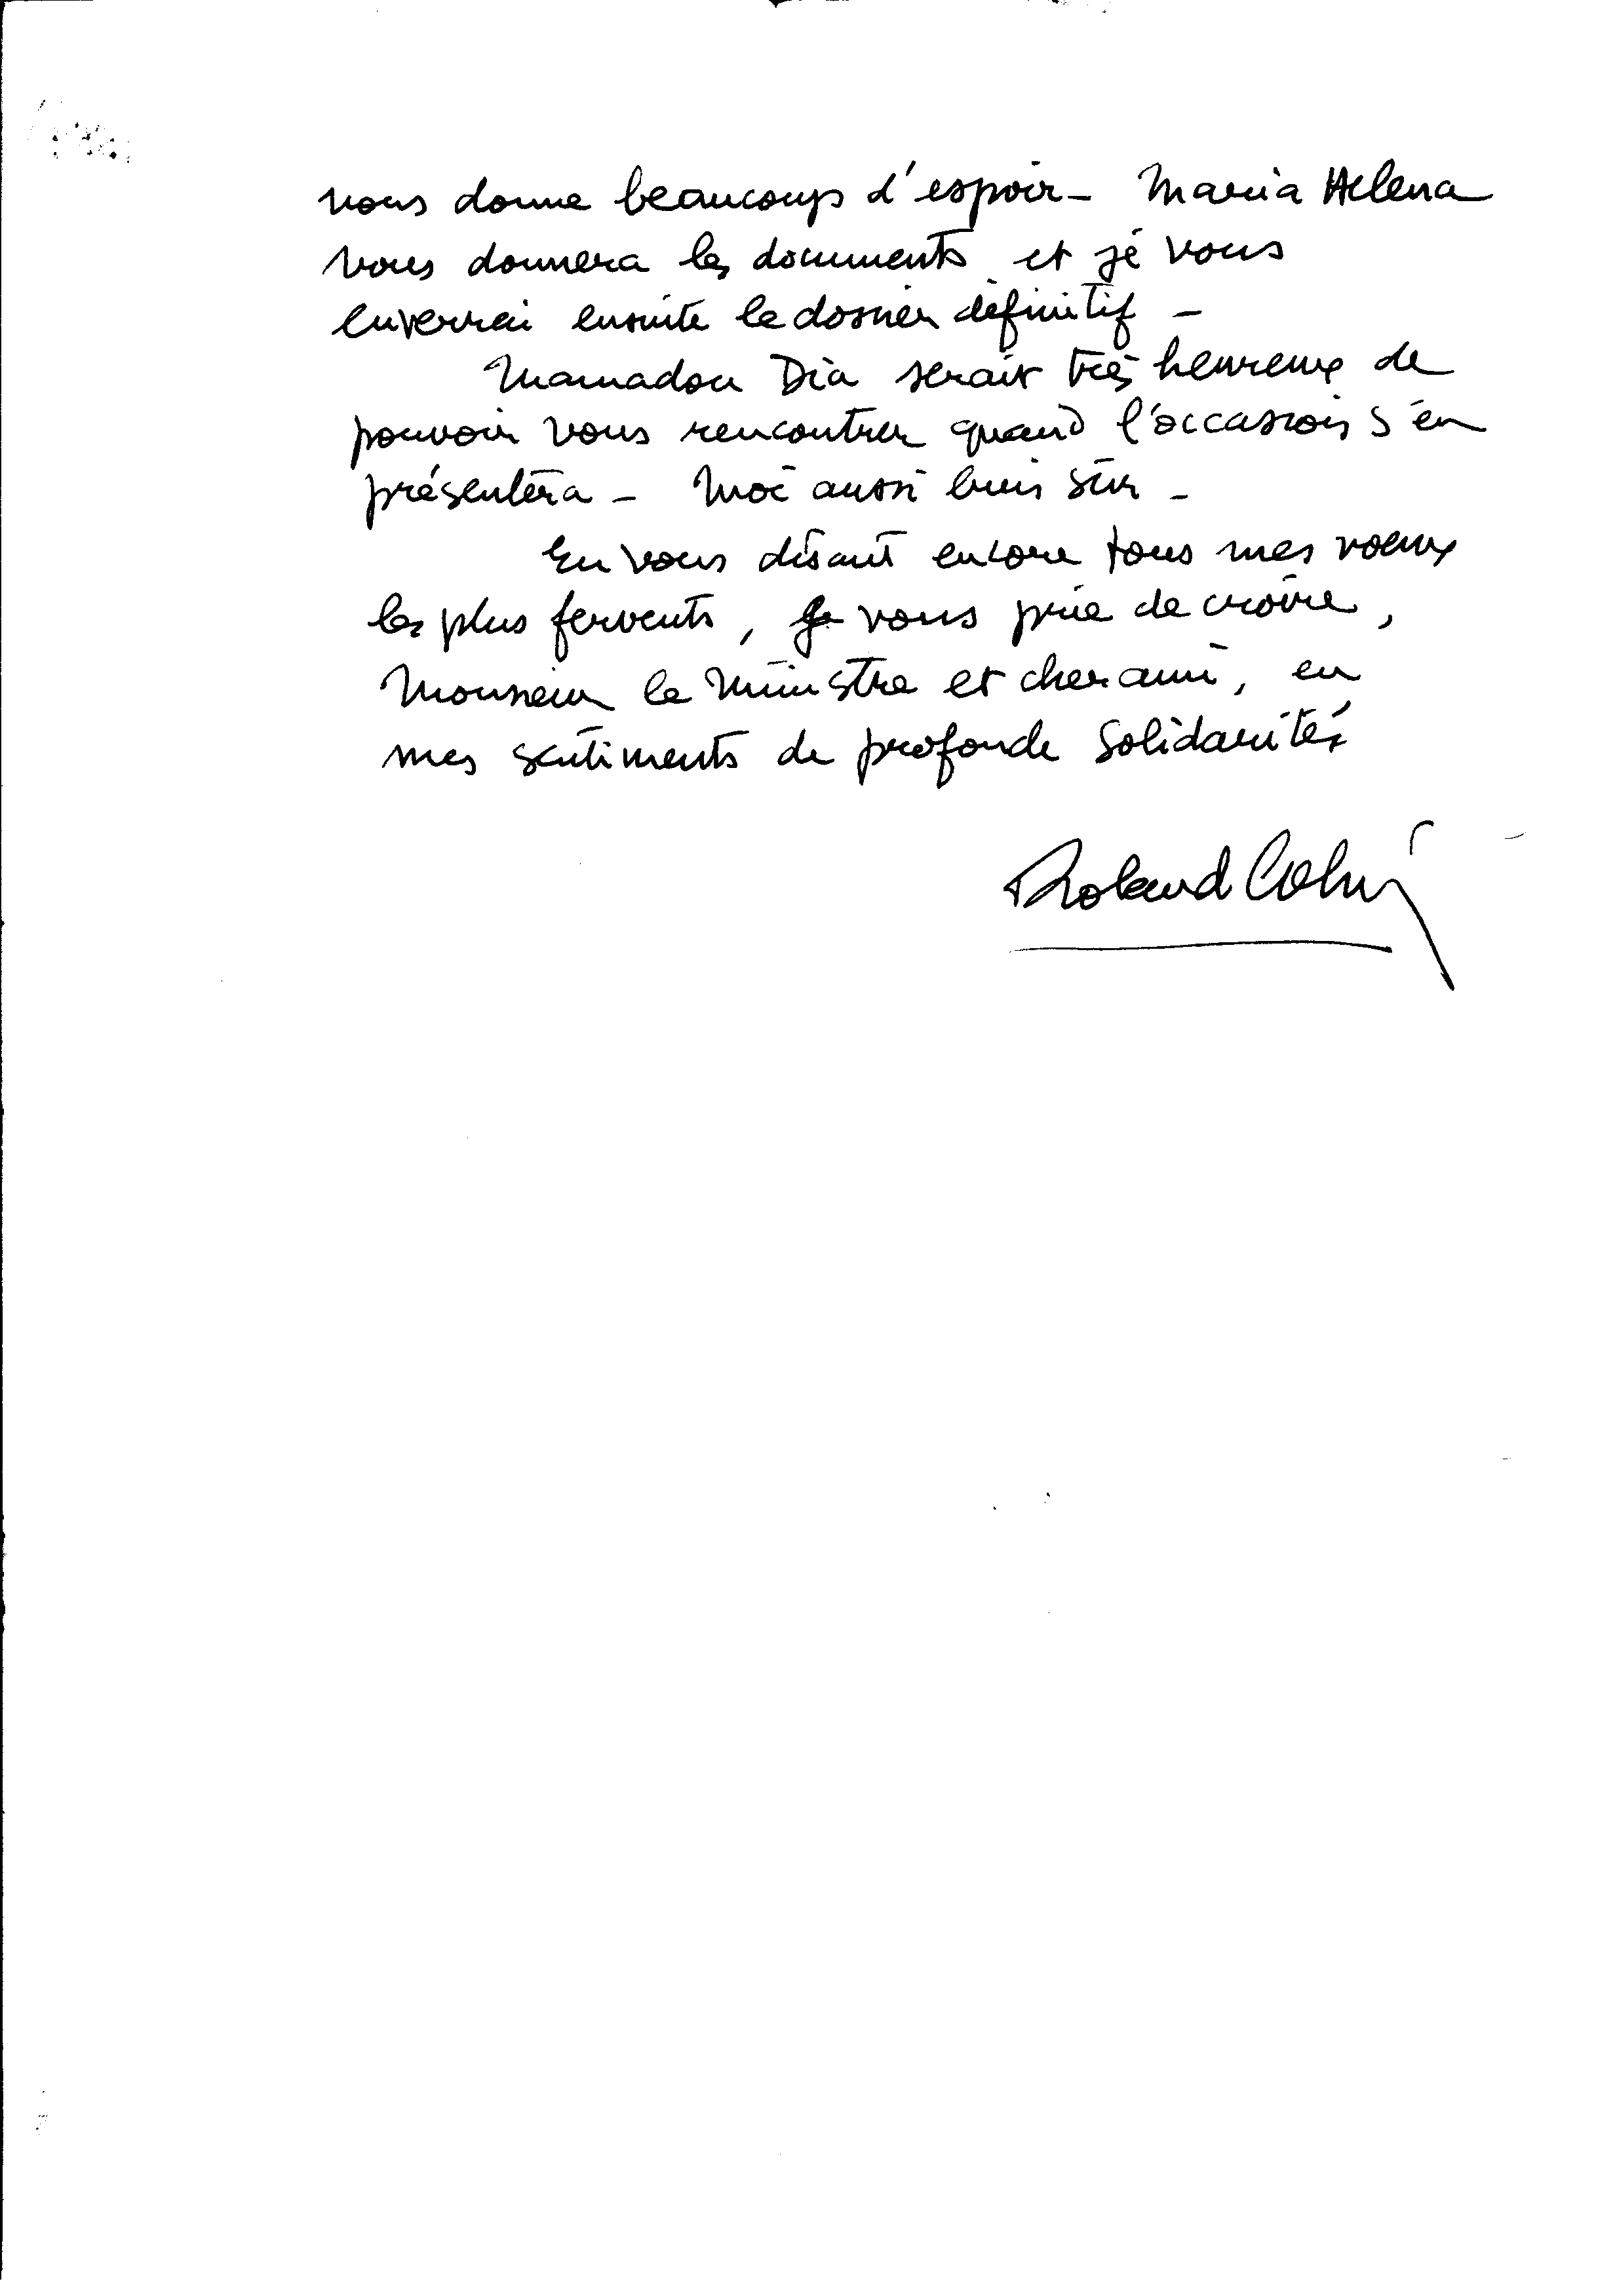 nous donne beaucoup d'espoir - Maria Helena
vous donnera les documents et je vous
enverrai ensuite le dossier définitif -
Mamadou Dia serait très heureux de
pouvoir vous rencontrer quand l'occasion s'en
présentera - Moi aussi bien sûr -
En vous disant encore tous mes voeux
les plus fervents, je vous prie de croire,
Monsieur le Ministre et cher ami, en
mes sentiments de profonde solidarité
Roland Colin